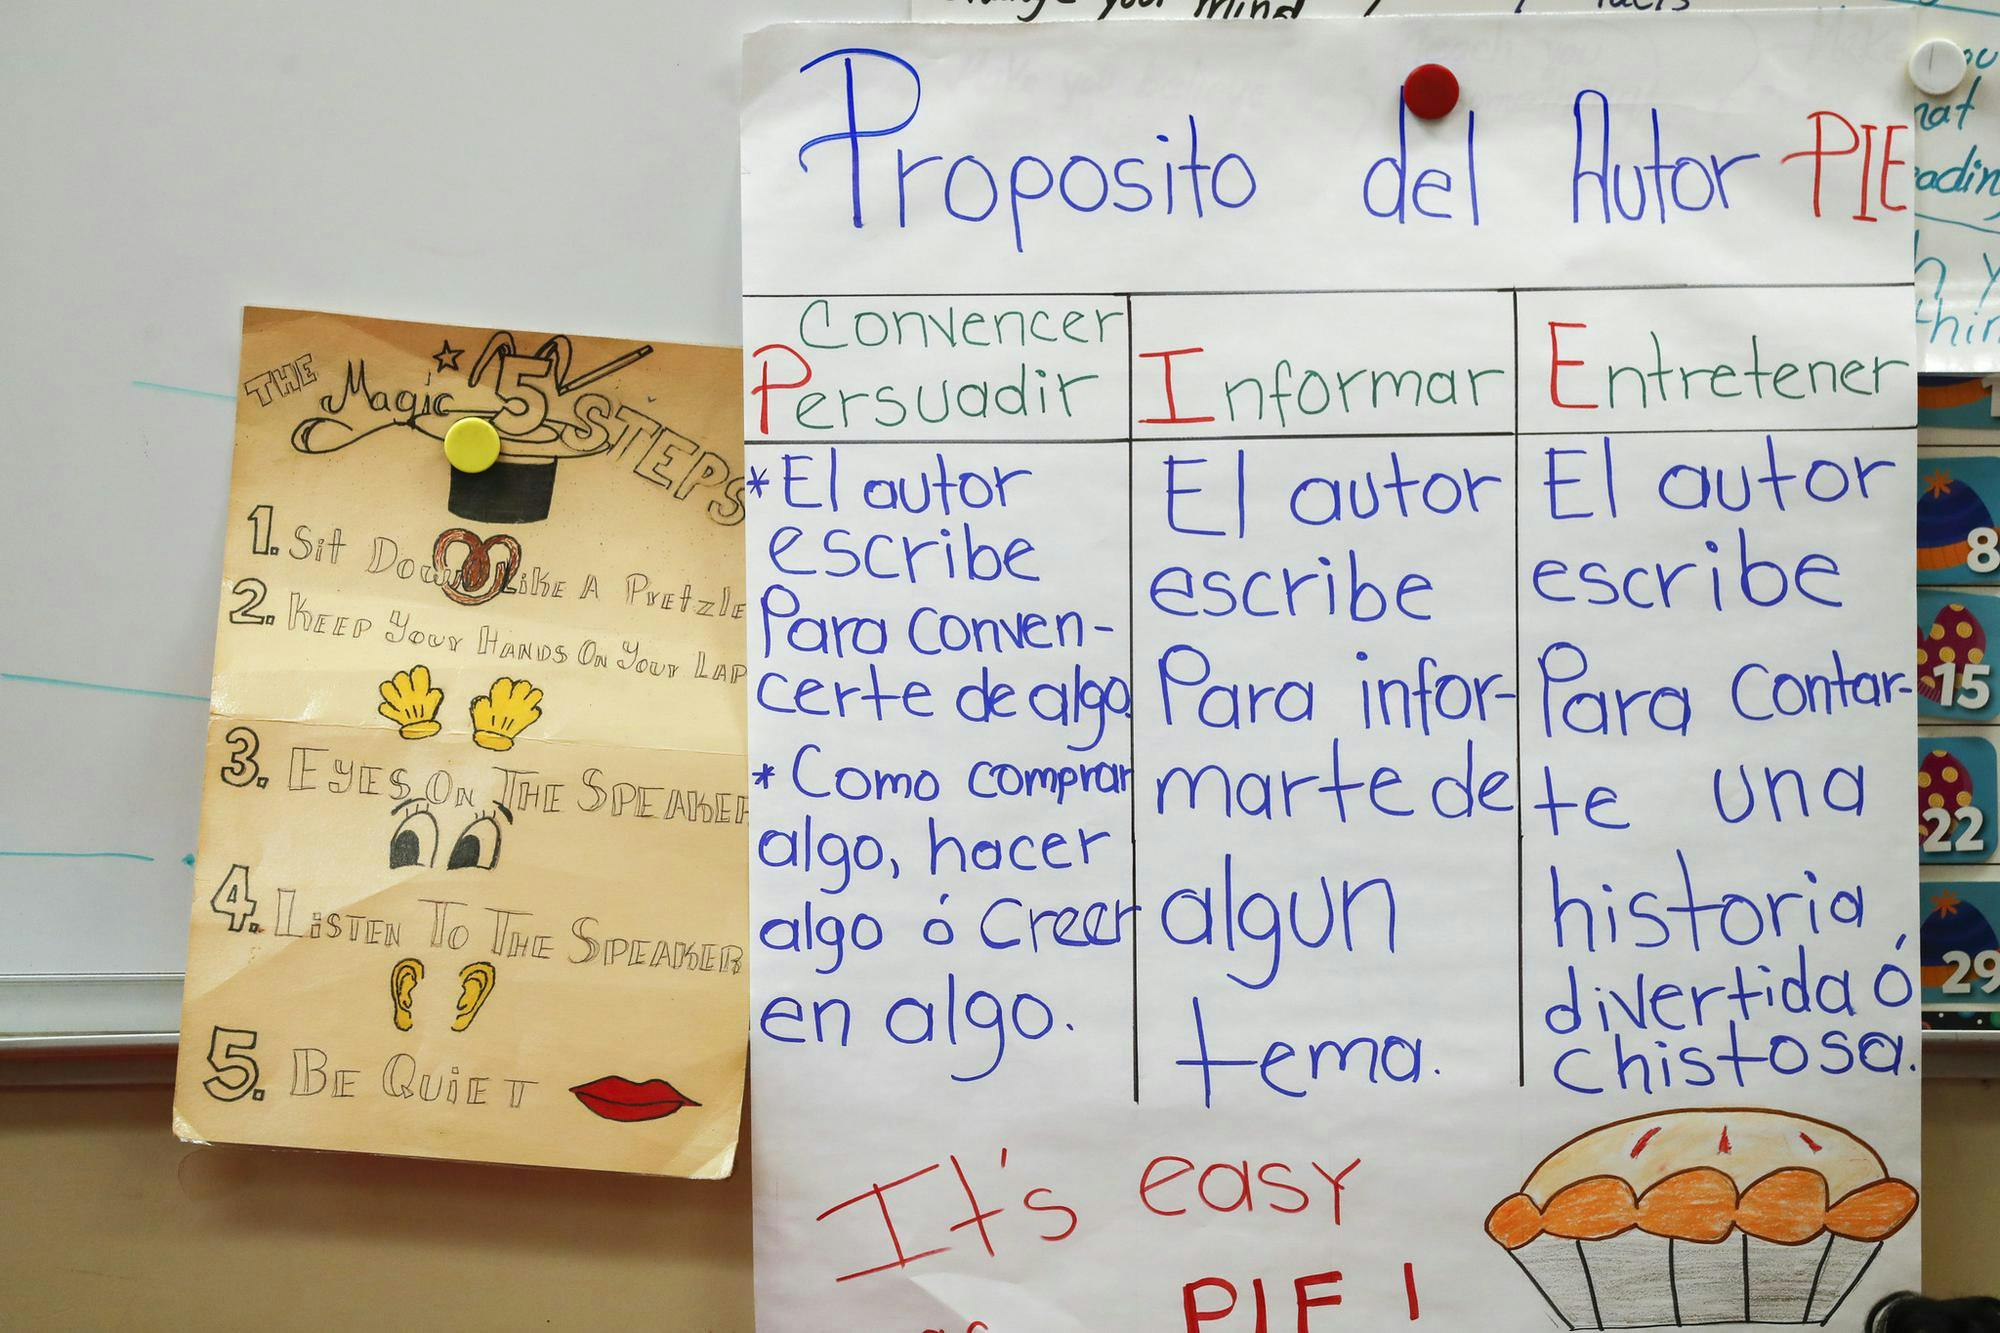 THE Magic 5 STEPS
1. Sit Down Like A Pretzle
2. Keep Your Hands On Your Lap
3. Eyes On The Speaker
4. Listen To The Speaker
5. Be Quiet
Proposito del Autor PIE
Convencer
Persuadir
*El autor
escribe
Para conven-
certe de algo.
*Como comprar
algo, hacer
algo ó Creer
en algo.
Informar
El autor
escribe
Para infor-
marte de
algun
tema.
Entretener
El autor
escribe
Para contar-
te una
historia
divertida ó
chistosa.
It's easy
as PIE!
your mind
8
15
22
29